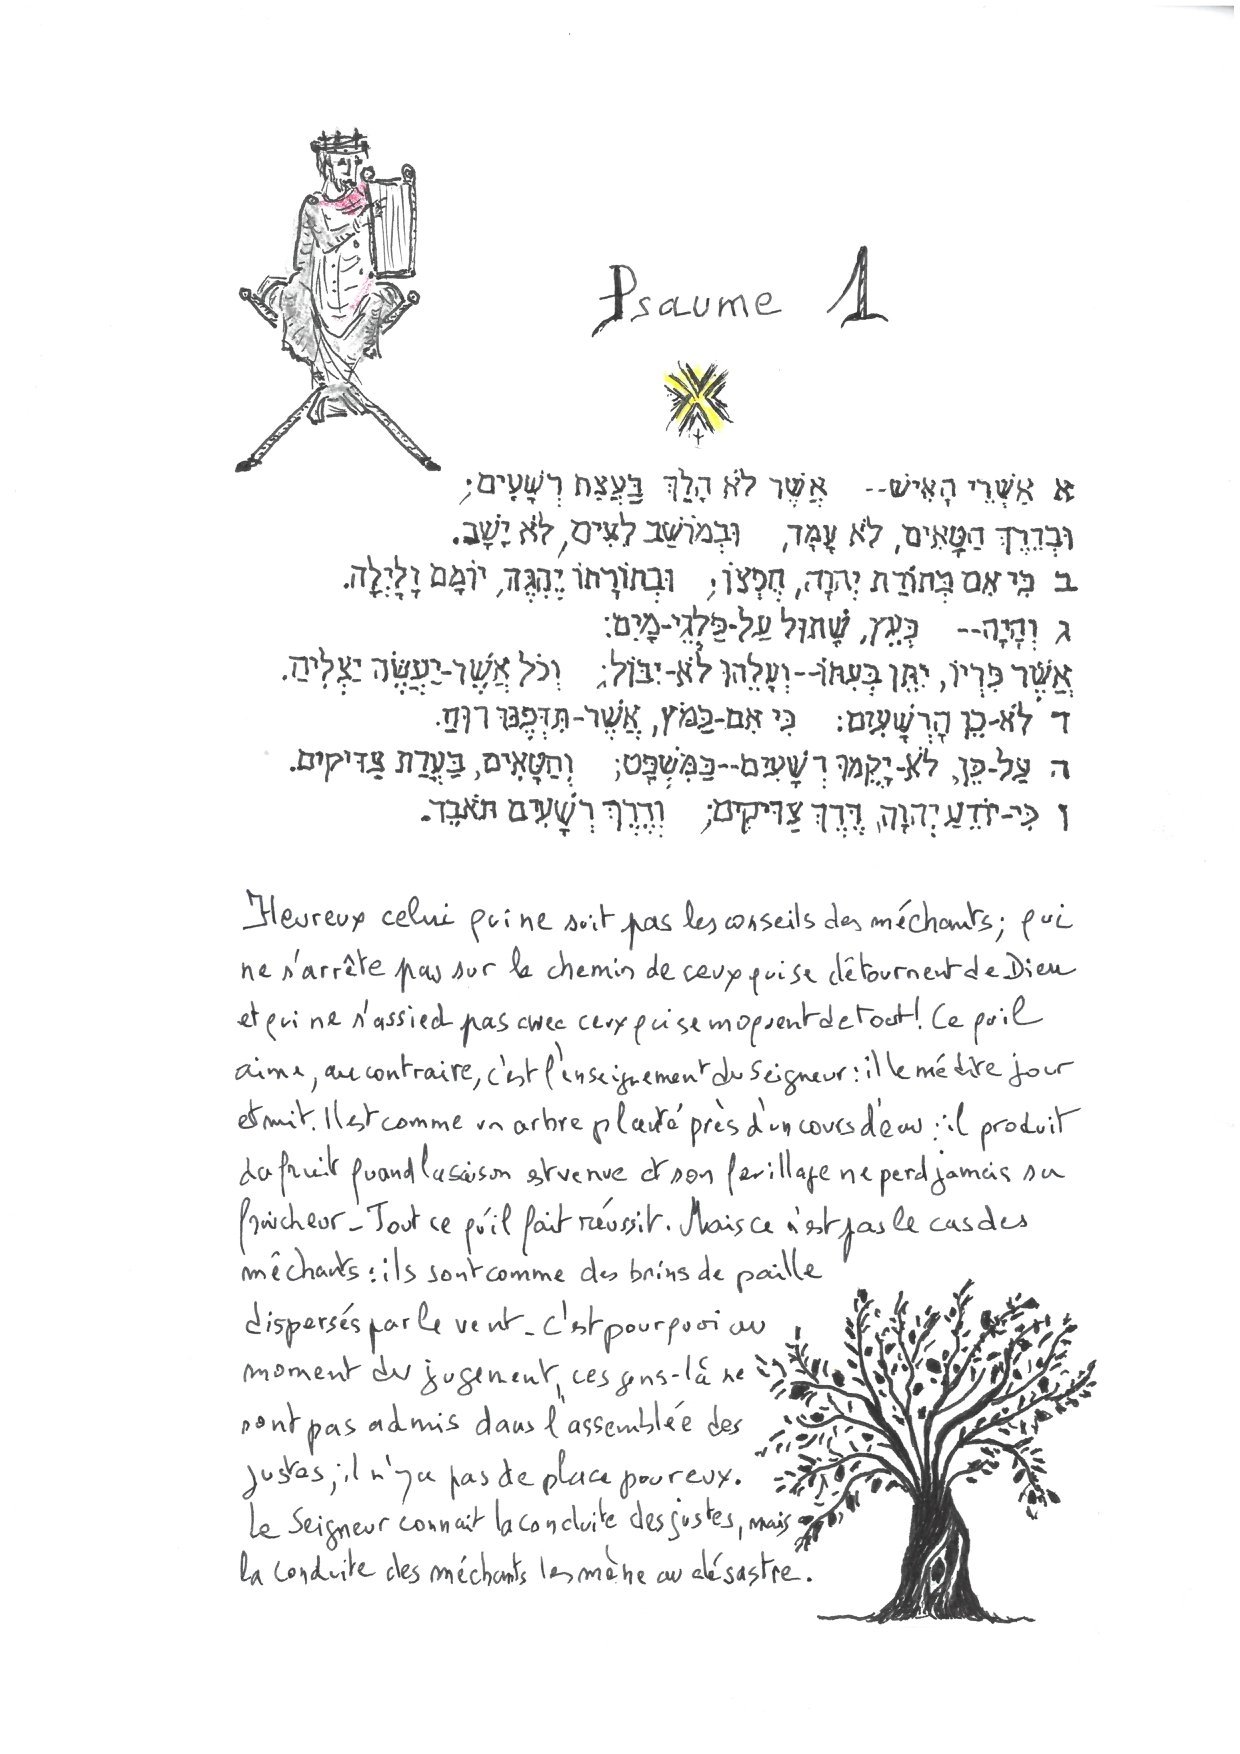 Psaume 1
א אַשְׁרֵי הָאִישׁ-- אֲשֶׁר לֹא הָלַךְ בַּעֲצַת רְשָׁעִים;
וּבְדֶרֶךְ חַטָּאִים, לֹא עָמָד, וּבְמוֹשַׁב לֵצִים, לֹא יָשָׁב.
ב כִּי אִם בְּתוֹרַת יְהוָה, חֶפְצוֹ; וּבְתוֹרָתוֹ יֶהְגֶּה, יוֹמָם וָלָיְלָה.
ג וְהָיָה-- כְּעֵץ, שָׁתוּל עַל-פַּלְגֵי-מָיִם:
אֲשֶׁר פִּרְיוֹ, יִתֵּן בְּעִתּוֹ--וְעָלֵהוּ לֹא-יִבּוֹל; וְכֹל אֲשֶׁר-יַעֲשֶׂה יַצְלִיחַ.
ד לֹא-כֵן הָרְשָׁעִים: כִּי אִם-כַּמֹּץ, אֲשֶׁר-תִּדְּפֶנּוּ רוּחַ.
ה עַל-כֵּן, לֹא-יָקֻמוּ רְשָׁעִים--בַּמִּשְׁפָּט; וְחַטָּאִים, בַּעֲדַת צַדִּיקִים.
ו כִּי-יוֹדֵעַ יְהוָה, דֶּרֶךְ צַדִּיקִים; וְדֶרֶךְ רְשָׁעִים תֹּאבֵד.
Heureux celui qui ne suit pas les conseils des méchants; qui
ne s'arrête pas sur le chemin de ceux qui se détournent de Dieu
et qui ne s'assied pas avec ceux qui se moquent de tout! Ce qu'il
aime, au contraire, c'est l'enseignement du Seigneur: il le médite jour
et nuit. Il est comme un arbre planté près d'un cours d'eau: il produit
du fruit quand la saison est venue et son feuillage ne perd jamais sa
fraîcheur - Tout ce qu'il fait réussit. Mais ce n'est pas le cas des
méchants: ils sont comme des brins de paille
dispersés par le vent - C'est pourquoi au
moment du jugement, ces gens-là ne
sont pas admis dans l'assemblée des
justes; il n'y a pas de place pour eux.
Le Seigneur connait la conduite des justes, mais
la conduite des méchants les mène au désastre.